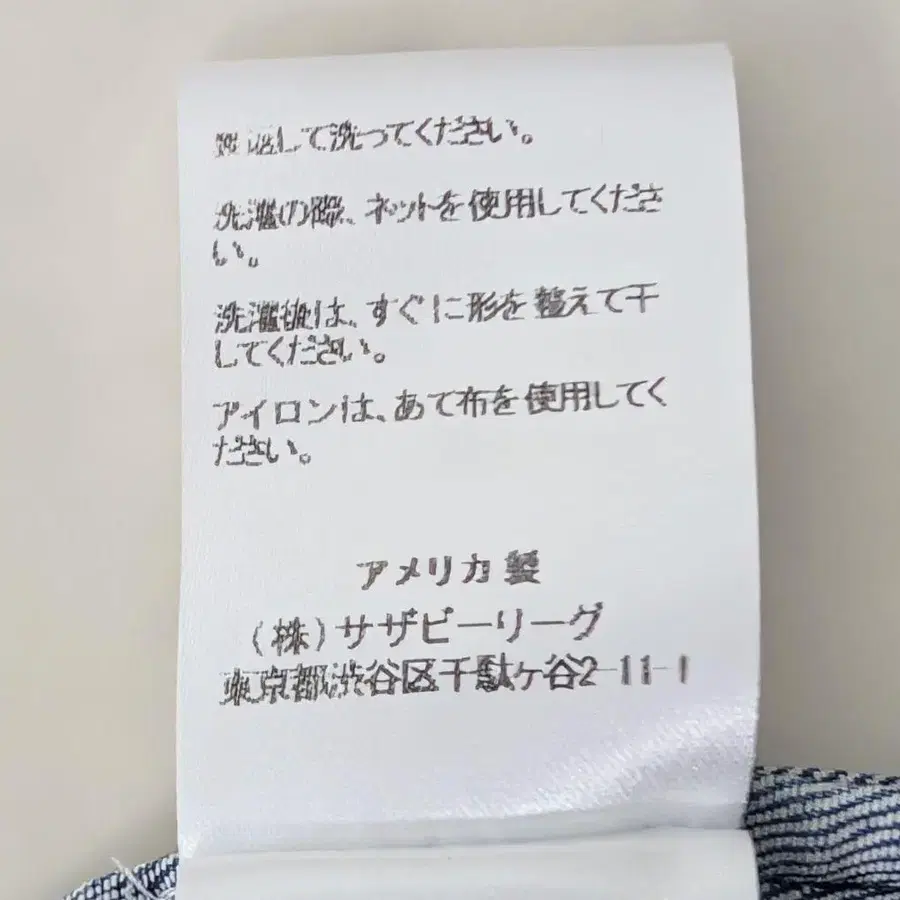 裏返して洗ってください。
洗濯の際、ネットを使用してくださ
い。
洗濯後は、すぐに形を整えて干
してください。
アイロンは、あて布を使用してく
ださい。
アメリカ製
(株)サザビーリーグ
東京都渋谷区千駄ヶ谷2-11-1